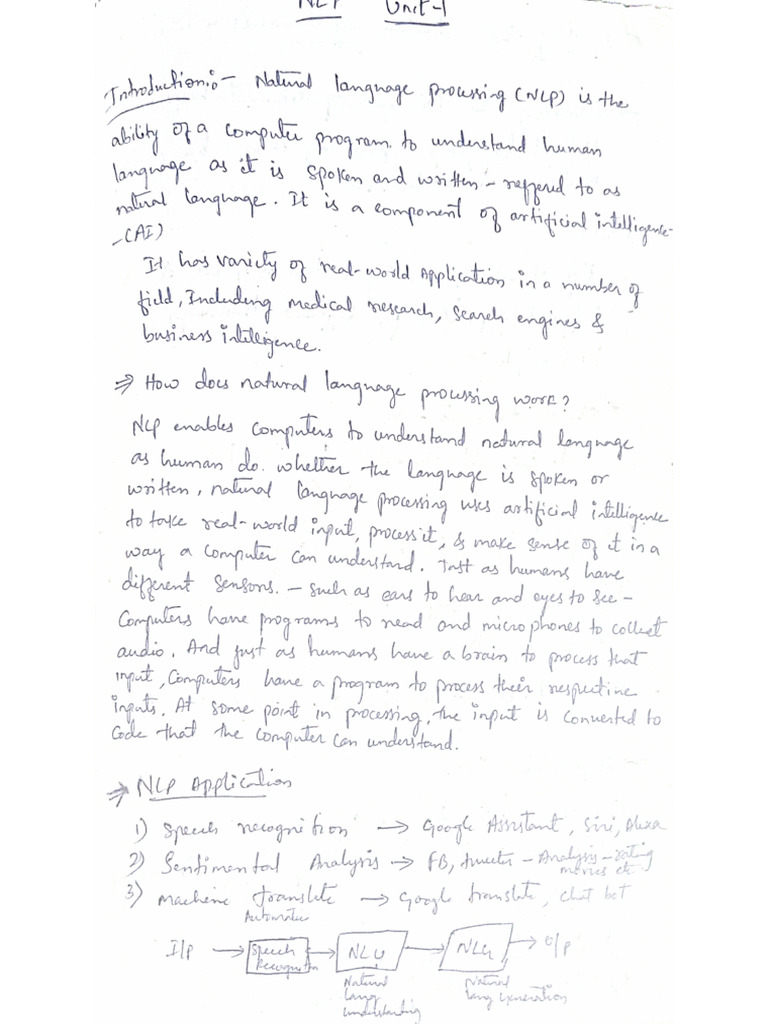 NLP Unit-1
Introduction:- Natural language processing (NLP) is the
ability of a computer program to understand human
language as it is spoken and written - reffered to as
natural language. It is a component of artificial intelligence
-(AI)
It has variety of real-world Application in a number of
field, Including medical research, Search engines &
business intelligence.
⇒ How does natural language processing work?
NLP enables computers to understand natural language
as human do. whether the language is spoken or
written, natural language processing uses artificial intelligence
to take real-world input, process it, & make sense of it in a
way a computer can understand. Just as humans have
different sensors. - such as ears to hear and eyes to see -
Computers have programs to read and microphones to collect
audio. And just as humans have a brain to process that
input, Computers have a program to process their respective
inputs. At some point in processing, the input is converted to
code that the computer can understand.
⇒ NLP Application
1) Speech recognition → Google Assistant, Siri, Alexa
2) Sentimental Analysis → FB, tweeter - Analysis - rating
movies etc
3) Machine translate → Google translate, chat bot
Automatic
I/P → Speech Recognition → NLU → NLG → O/P
Natural Lang Understanding
Natural Lang Generation